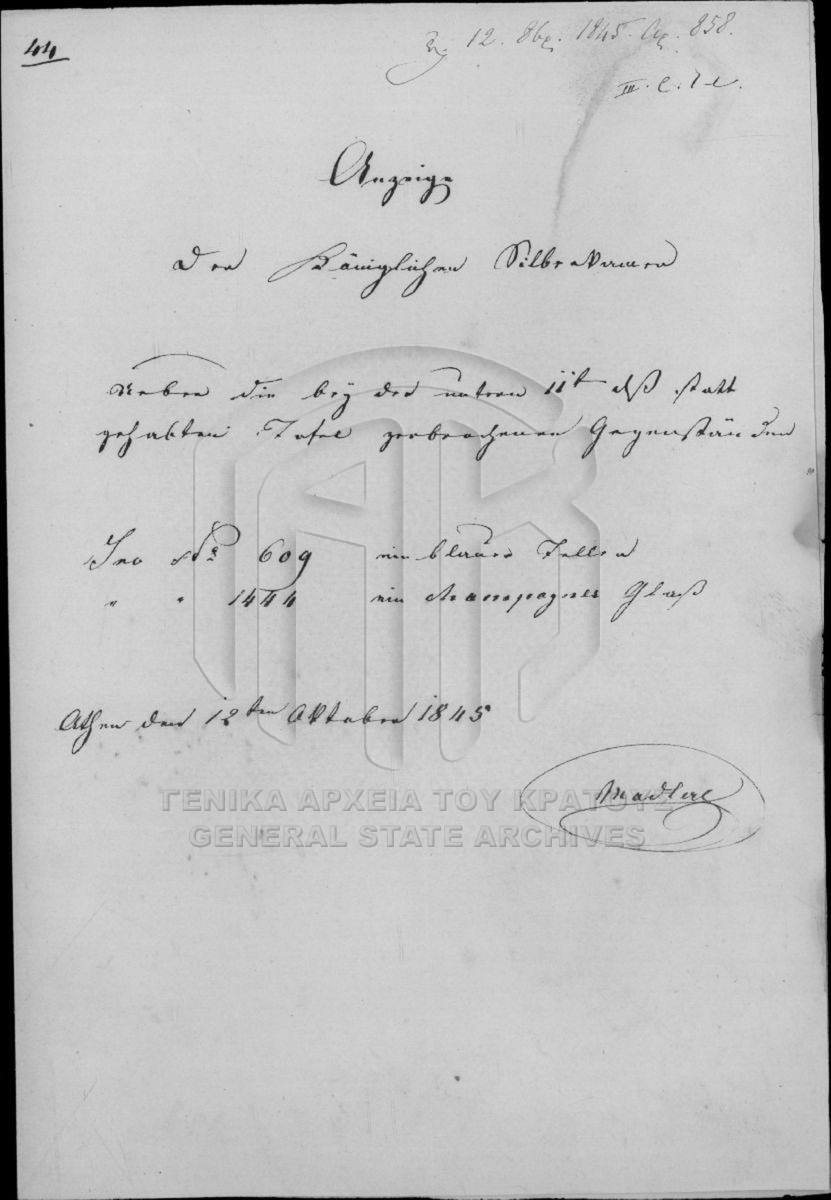 44
12. 8br. 1845. 858.
III. C. 7 e.
Anzeige
Der Königlichen Silberkamer
Ueber die bey der untern 11t dß statt
gehabten Tafel zerbrochenen Gegenständen
Inv No 609 ein blauer Teller
" " 1444 ein champagner Glaß
Athen den 12ten Oktober 1845
ΓΕΝΙΚΑ ΑΡΧΕΙΑ ΤΟΥ ΚΡΑΤΟΥΣ
GENERAL STATE ARCHIVES